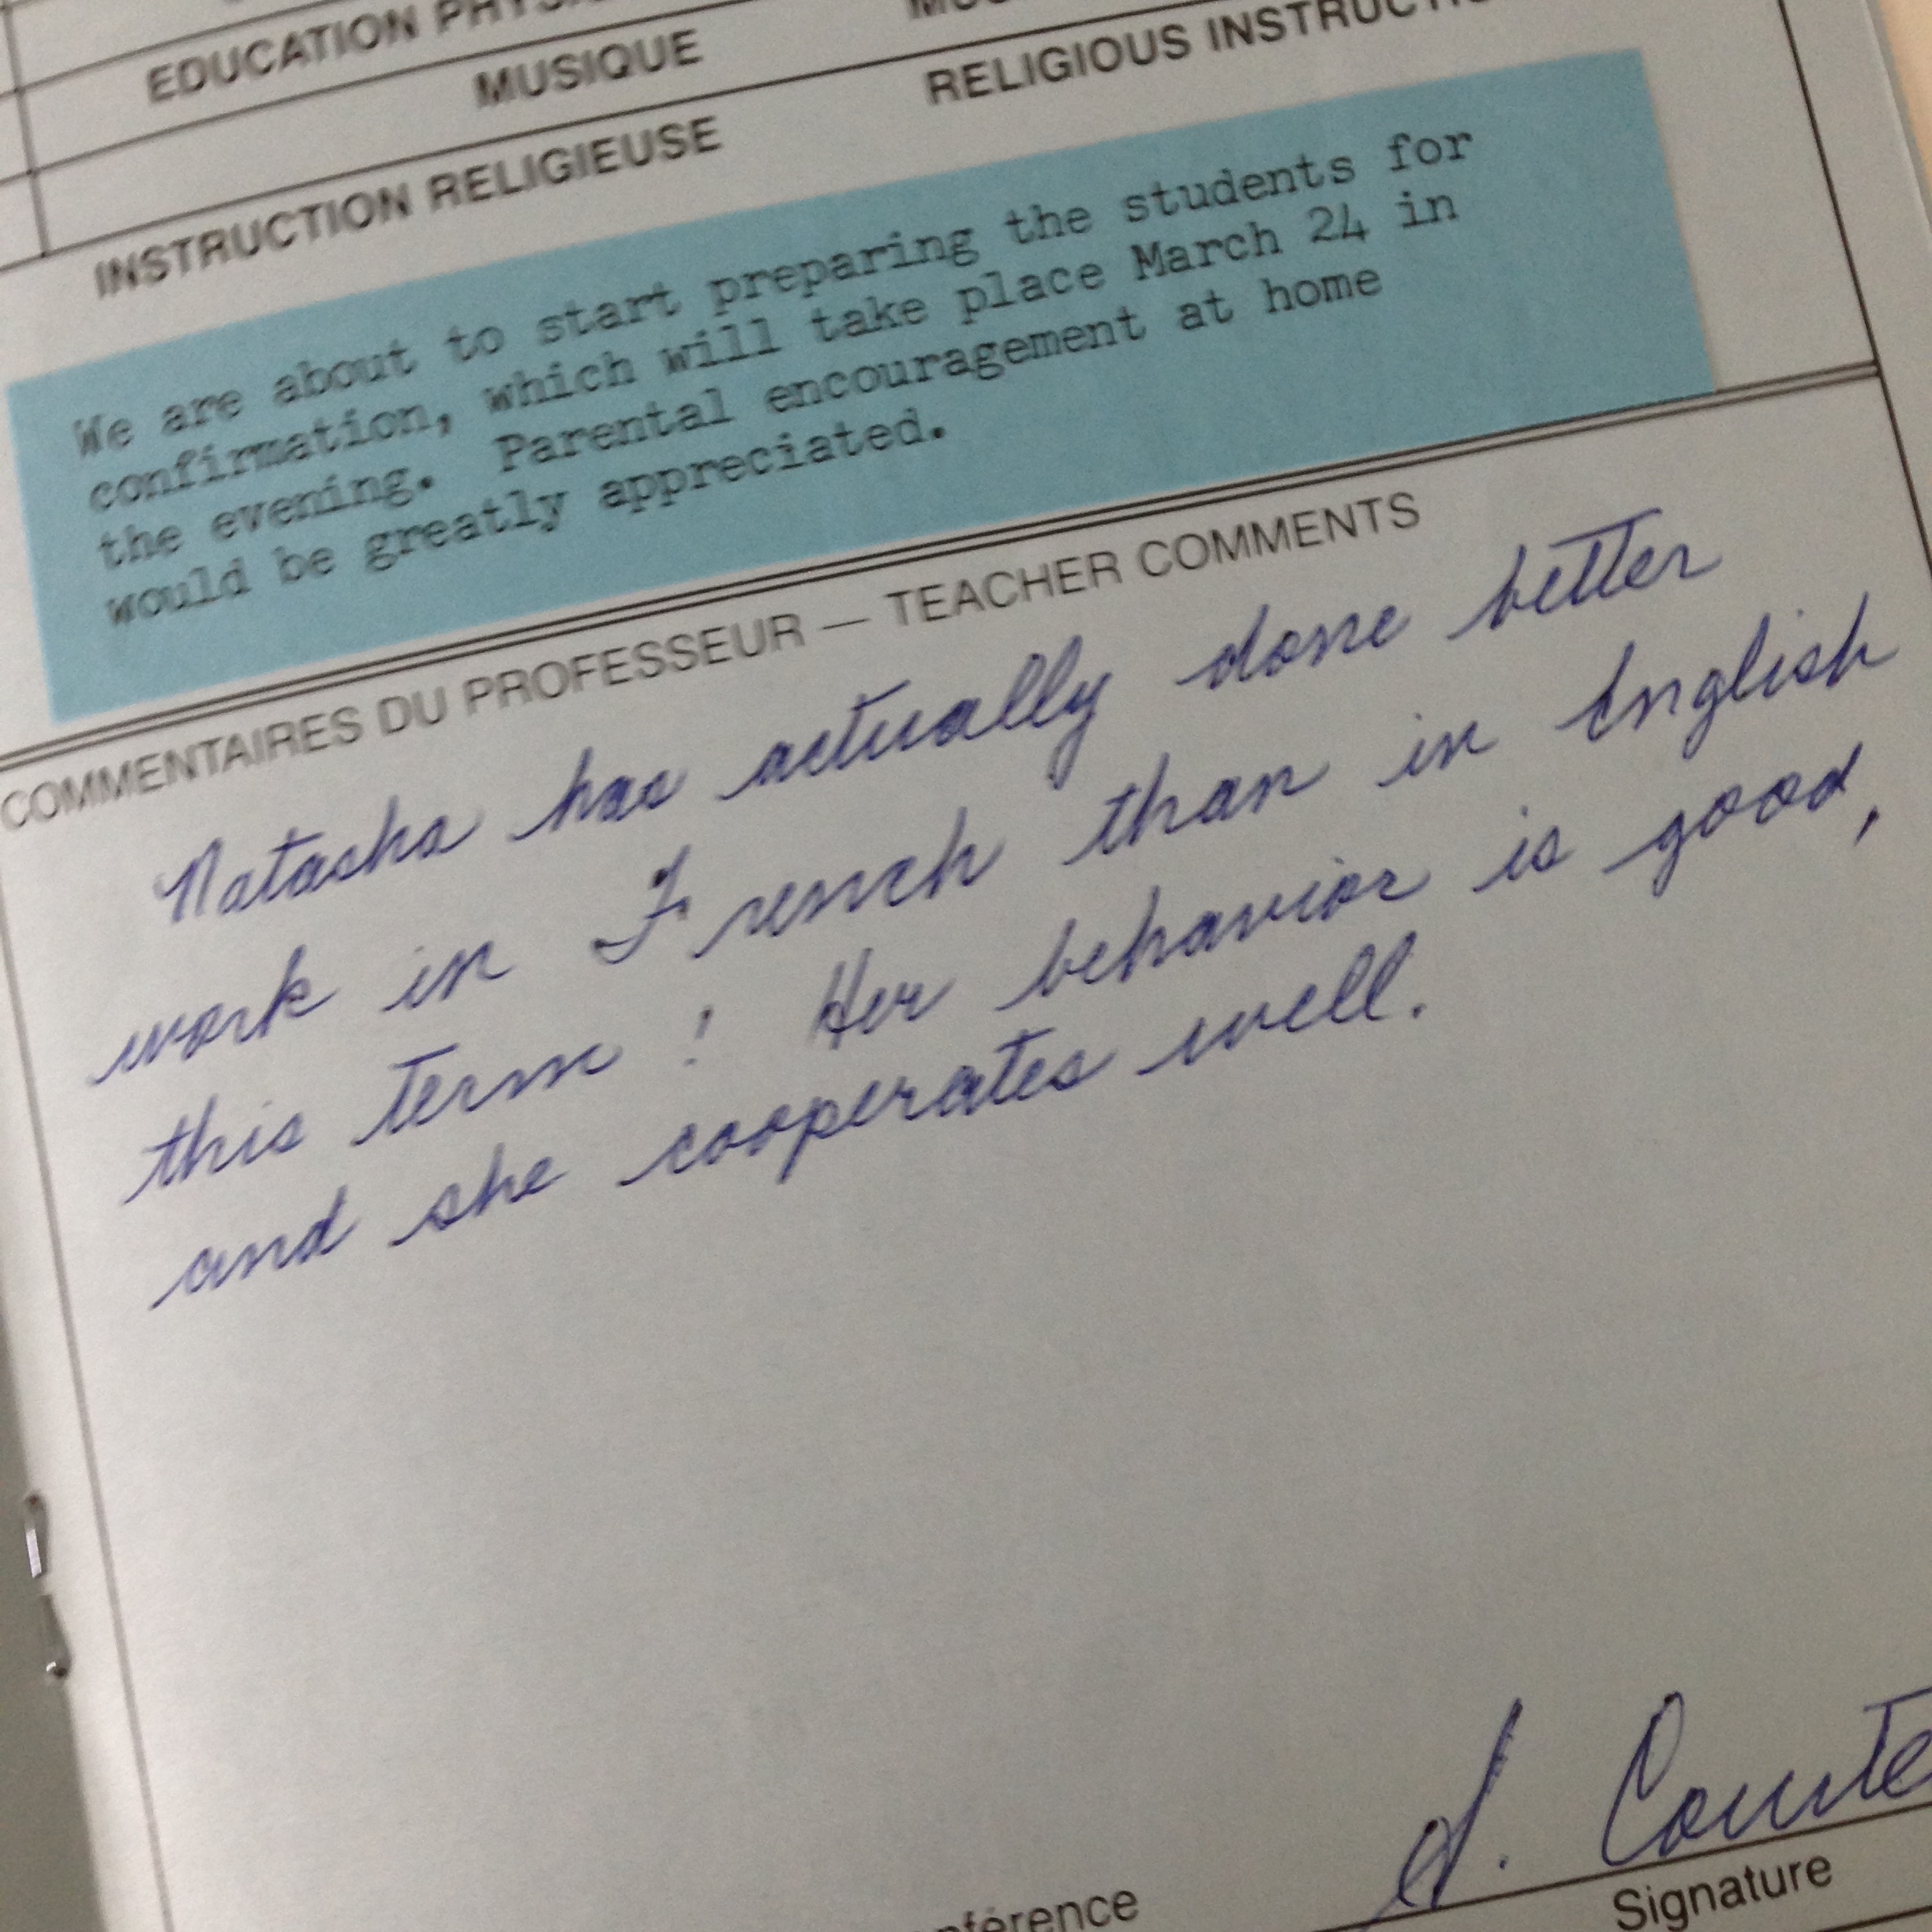 EDUCATION PHYSI
MUSIQUE
INSTRUCTION RELIGIEUSE RELIGIOUS INSTRUCTIO
We are about to start preparing the students for
confirmation, which will take place March 24 in
the evening. Parental encouragement at home
would be greatly appreciated.
COMMENTAIRES DU PROFESSEUR — TEACHER COMMENTS
Natasha has actually done better
work in French than in English
this term! Her behavior is good,
and she cooperates well.
nférence
Signature